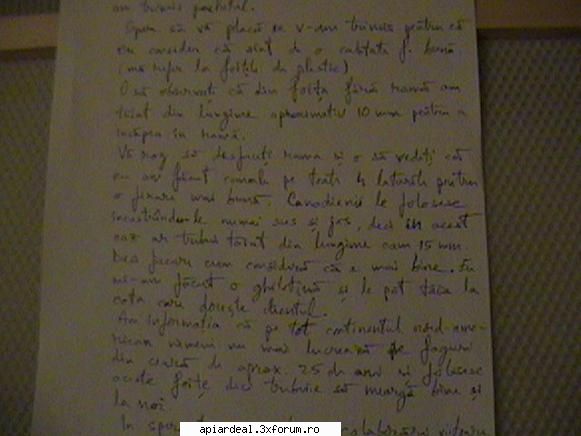 am trimis pachetul.
Sper să vă placă ce v-am trimis pentru că
eu consider că sînt de o calitate f. bună
(mă refer la foițele de plastic)
O să observați că din foița fără ramă am
tăiat din lungime aproximativ 10 mm pentru a
încăpea în ramă.
Vă rog să desfaceți rama și o să vedeți că
eu am făcut canale pe toate 4 laturile pentru
o fixare mai bună. Canadienii le folosesc
încastrându-le numai sus și jos, deci în acest
caz ar trebui tăiat din lungime cam 15 mm.
Deci fiecare cum consideră că e mai bine. Eu
mi-am făcut o ghilotină și le pot tăia la
cota care dorește clientul.
Am informația că pe tot continentul nord-ame-
rican nimeni nu mai lucrează pe faguri
din ceară de aprox. 25 de ani și folosesc
aceste foițe deci trebuie să meargă bine și
la noi.
În colaborări viitoare
apiardeal.3xforum.ro